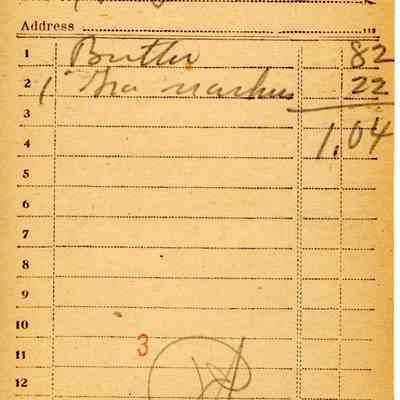 Address 112
1 Butter 82
2 1 Gra 22
3
4 1.04
5
6
7
8
9
10
11 3
12